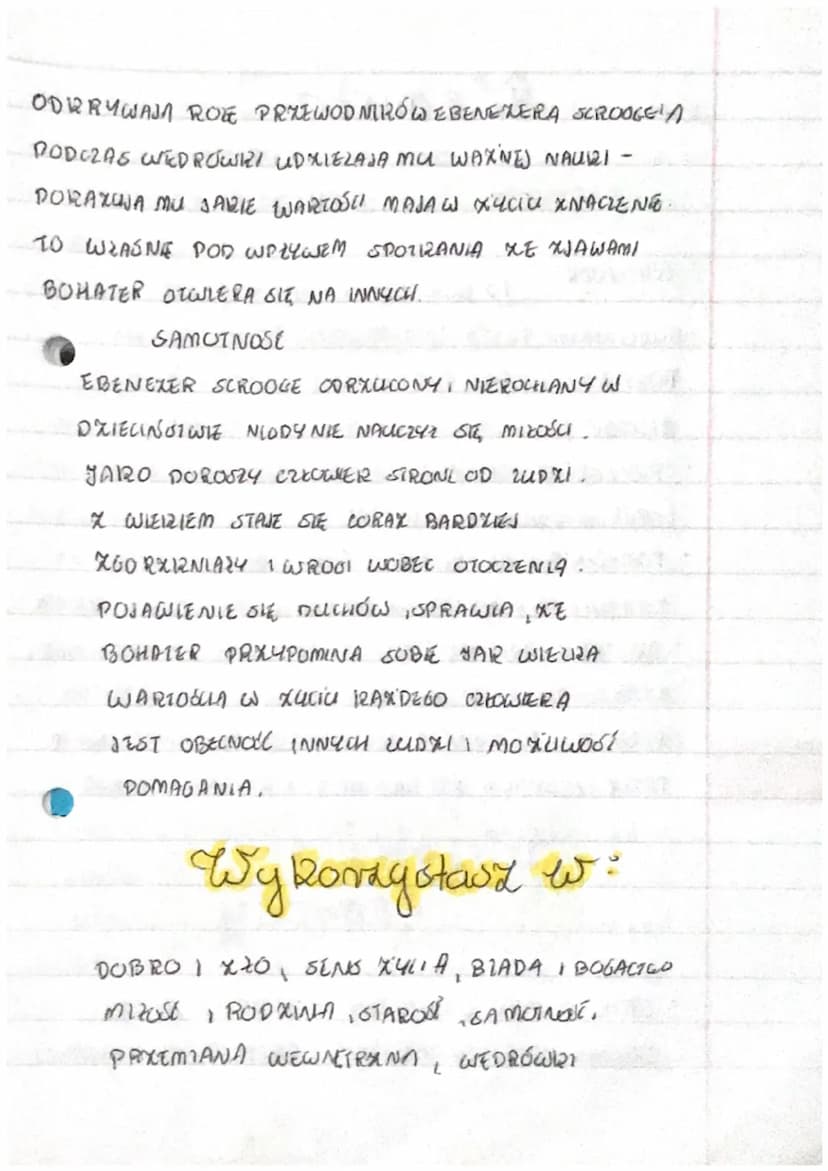 ODKRYWAJĄ ROLĘ PRZEWODNIKÓW EBENEZERA SCROOGE'A
PODCZAS WĘDRÓWKI UDZIELAJĄ MU WAŻNEJ NAUKI -
POKAZUJĄ MU JAKIE WARTOŚCI MAJĄ W ŻYCIU ZNACZENIE.
TO WŁAŚNIE POD WPŁYWEM SPOTKANIA ZE ZJAWAMI
BOHATER OTWIERA SIĘ NA INNYCH.
SAMOTNOŚĆ
EBENEZER SCROOGE ODRZUCONY I NIEKOCHANY W
DZIECIŃSTWIE NIGDY NIE NAUCZYŁ SIĘ MIŁOŚCI.
JAKO DOROSŁY CZŁOWIEK STRONI OD LUDZI.
Z WIEKIEM STAJE SIĘ CORAZ BARDZIEJ
ZGORZKNIAŁY I WROGI WOBEC OTOCZENIA.
POJAWIENIE SIĘ DUCHÓW, SPRAWIA, ŻE
BOHATER PRZYPOMINA SOBIE JAK WIELKĄ
WARTOŚCIĄ W ŻYCIU KAŻDEGO CZŁOWIEKA
JEST OBECNOŚĆ INNYCH LUDZI I MOŻLIWOŚĆ
POMAGANIA.
Wykorzystasz w:
DOBRO I ZŁO, SENS ŻYCIA, BIEDA I BOGACTWO
MIŁOŚĆ, RODZINA, STAROŚĆ, SAMOTNOŚĆ,
PRZEMIANA WEWNĘTRZNA, WĘDRÓWKI